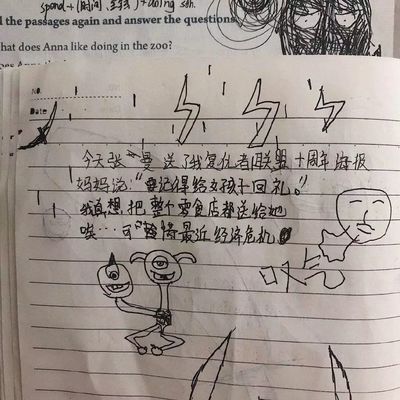 spend + (时间, 金钱) + doing sth.
d the passages again and answer the questions
hat does Anna like doing in the zoo?
NO.
Date
今天张 曼送了我复仇者联盟十周年海报
妈妈说:“记得给女孩子回礼。”
我真想把整个零食店都送给她
唉…可惜最近经济危机